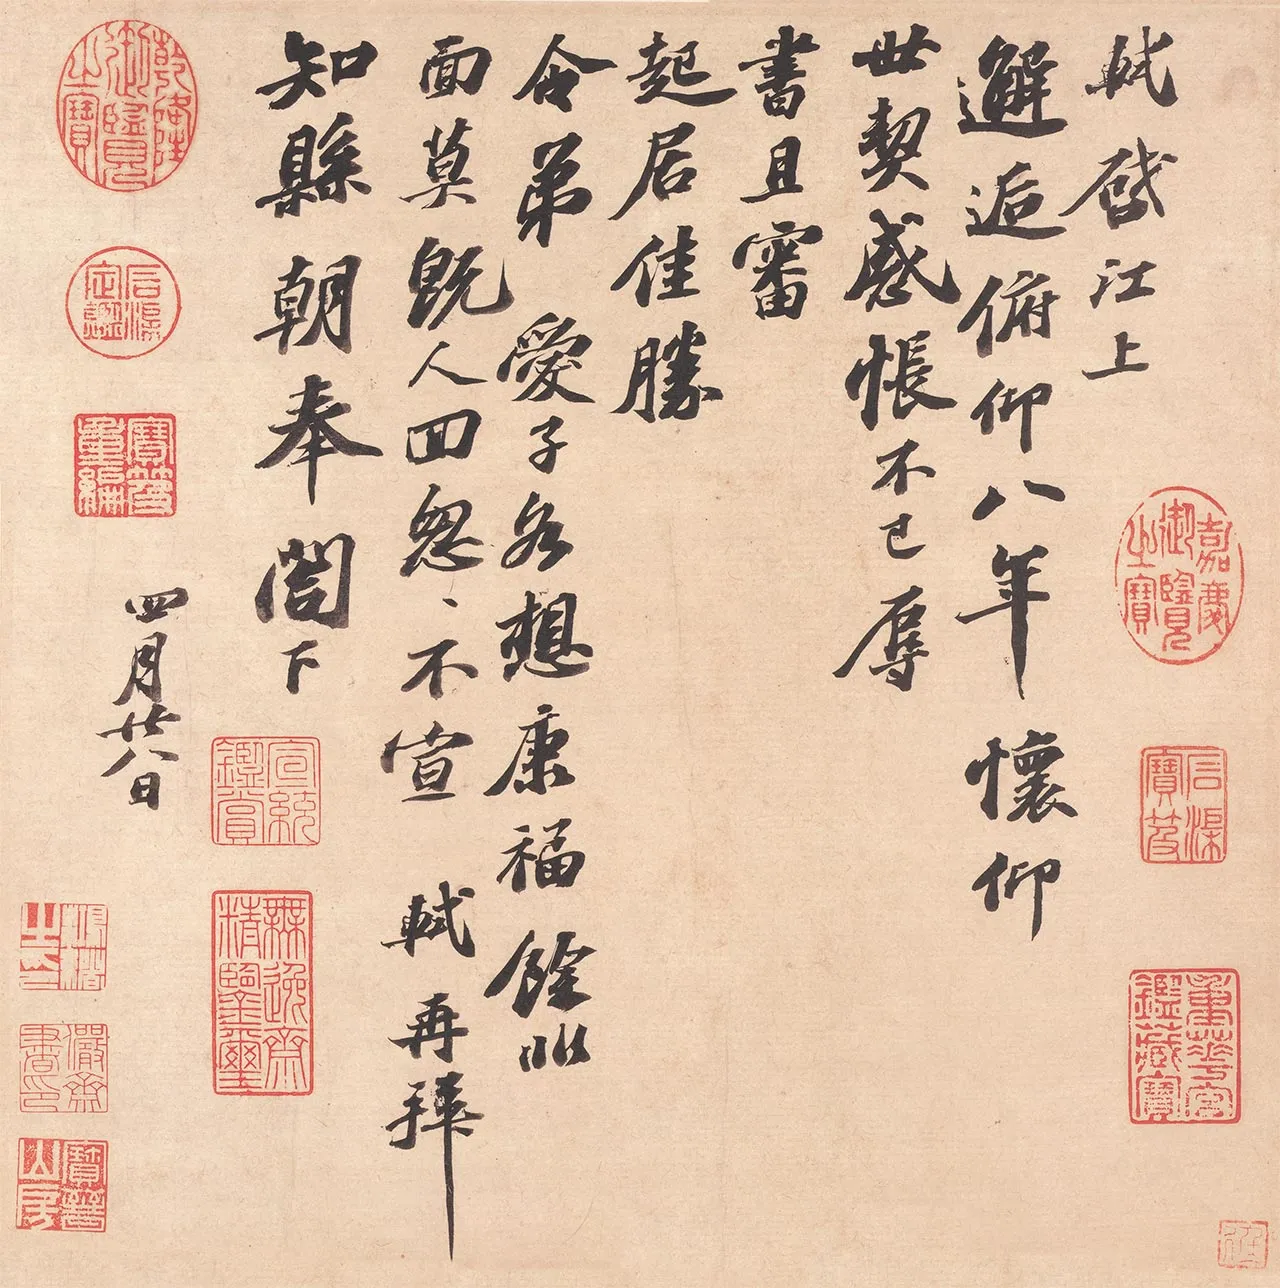 軾啓江上
邂逅俯仰八年懷仰
世契感悵不已辱
書且審
起居佳勝
令弟愛子各想康福餘非
面莫既人回怱〻不宣軾再拜
知縣朝奉閣下
四月廿八日
嘉慶御覽之寶
石渠寶笈
重華宮鑑藏寶
乾隆御覽之寶
石渠定鑑
寶笈重編
宣統鑑賞
無逸齋精鑒璽